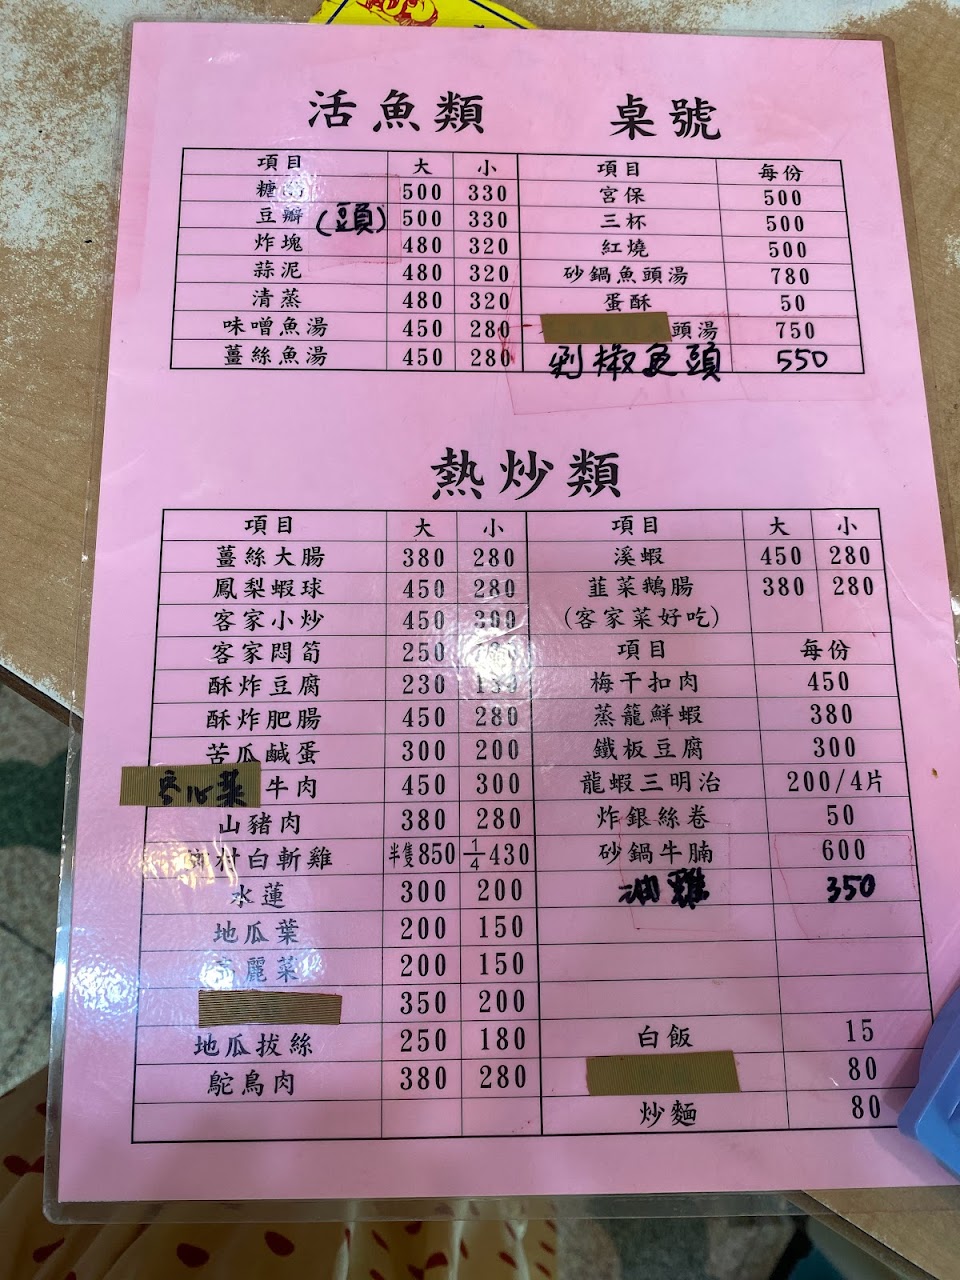 活魚類 桌號
項目 大 小 項目 每份
糖 500 330 宮保 500
豆瓣(頭) 500 330 三杯 500
炸塊 480 320 紅燒 500
蒜泥 480 320 砂鍋魚頭湯 780
清蒸 480 320 蛋酥 50
味噌魚湯 450 280 頭湯 750
薑絲魚湯 450 280 剁椒魚頭 550
熱炒類
項目 大 小 項目 大 小
薑絲大腸 380 280 溪蝦 450 280
鳳梨蝦球 450 280 韮菜鵝腸 380 280
客家小炒 450 300 (客家菜好吃)
客家悶筍 250 項目 每份
酥炸豆腐 230 梅干扣肉 450
酥炸肥腸 450 280 蒸籠鮮蝦 380
苦瓜鹹蛋 300 200 鐵板豆腐 300
空心菜牛肉 450 300 龍蝦三明治 200/4片
山豬肉 380 280 炸銀絲卷 50
白斬雞 半隻850 1/4 430 砂鍋牛腩 600
水蓮 300 200 油雞 350
地瓜葉 200 150
高麗菜 200 150
350 200
地瓜拔絲 250 180 白飯 15
鴕鳥肉 380 280 80
炒麵 80